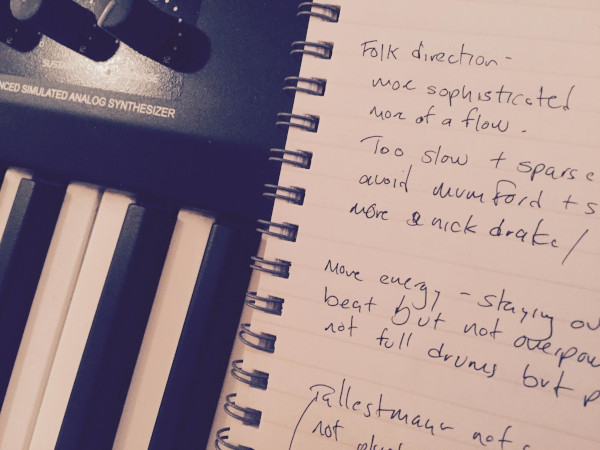 SUST
NCED SIMULATED ANALOG SYNTHESIZER
Folk direction -
more sophisticated
more of a flow.
Too slow + sparse
avoid mumford + s
more & nick drake/
more energy - staying ov
beat but not overpow
not full drums but p
Tallestman not
not